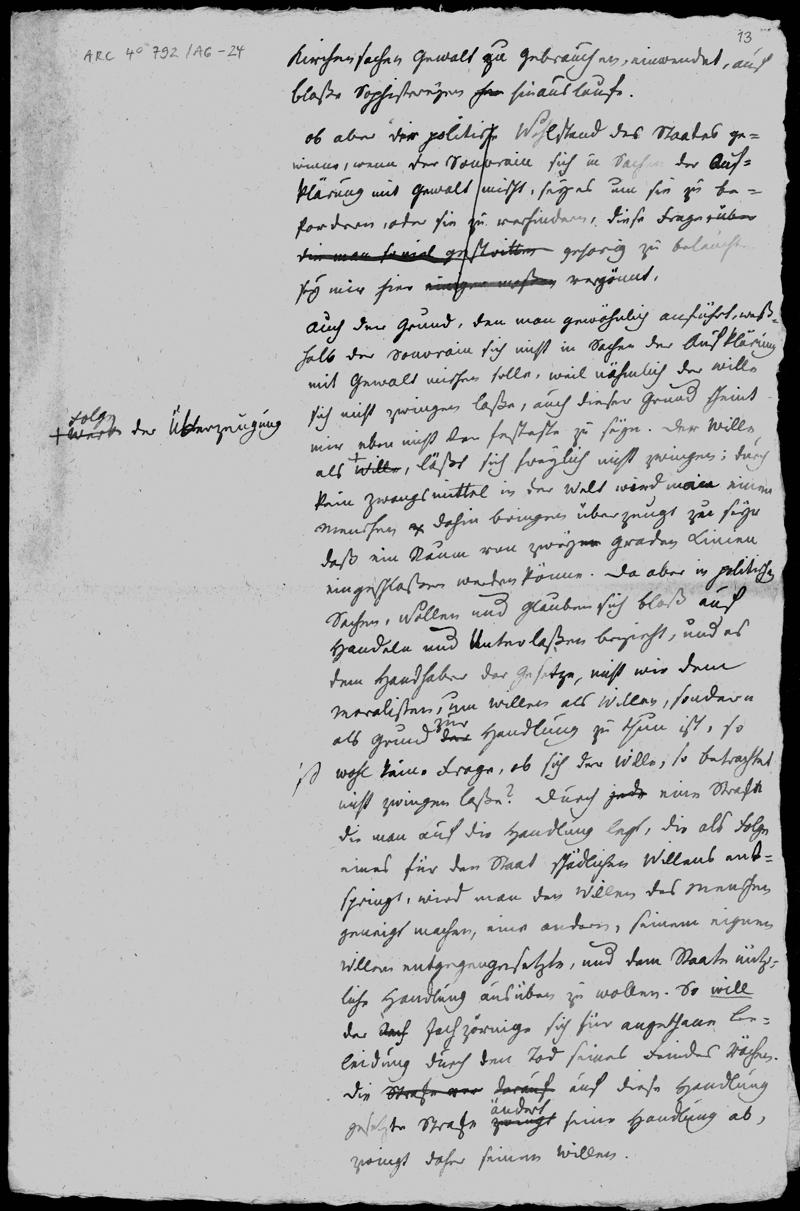 13
ARC 4° 792/A6-24
Kirchensachen Gewalt zu gebrauchen, einwendet, auf
bloße Sophistereyen hinauslaufe.
ob aber der politische Wohlstand des Staates ge=
winne, wenn der Souverain sich in Sachen der Auf=
klärung mit Gewalt mischt, seyes um sie zu be=
fördern, oder sie zu verhindern, diese Frage über
die man so viel gestritten gehörig zu beleuchten
sey mir hier einiger maßen vergönnt.
Auch der Grund, den man gewöhnlich anführt, weß=
halb der Souverain sich nicht in Sachen der Aufklärung
mit Gewalt mischen solle, weil nähmlich der Wille
sich nicht zwingen laße, auch dieser Grund scheint
mir eben nicht der festeste zu seyn. Der Wille
als + Wille, läßt sich freylich nicht zwingen; durch
+ Folge der Überzeugung
kein Zwangsmittel in der Welt wird man einen
Menschen dahin bringen überzeugt zu seyn
daß ein Raum von zwoyen graden Linien
eingeschloßen werden könne. Da aber in politischen
Sachen, Wollen und Glauben sich bloß auf
Handeln und Unterlaßen bezieht, und es
dem Handhaber der Gesetze, nicht wie dem
Moralisten, um Willen als Willen, sondern
als Grund der zur Handlung zu thun ist, so
ist wohl keine Frage, ob sich der Wille, so betrachtet
nicht zwingen laße? Durch jede eine Strafe
die man auf die Handlung legt, die als Folge
eines für den Staat schädlichen Willens ent=
springt, wird man den Willen des Menschen
geneigt machen, eine andere, seinem eignen
Willen entgegengesetzte, und dem Staate nütz=
liche Handlung ausüben zu wollen. So will
der Jachzornige sich für angethane Be=
leidigung durch den Tod seines Feindes rächen.
Die Strafe war darauf auf diese Handlung
gesetzte Strafe zwingt ändert seine Handlung ab,
zwingt daher seinen Willen.